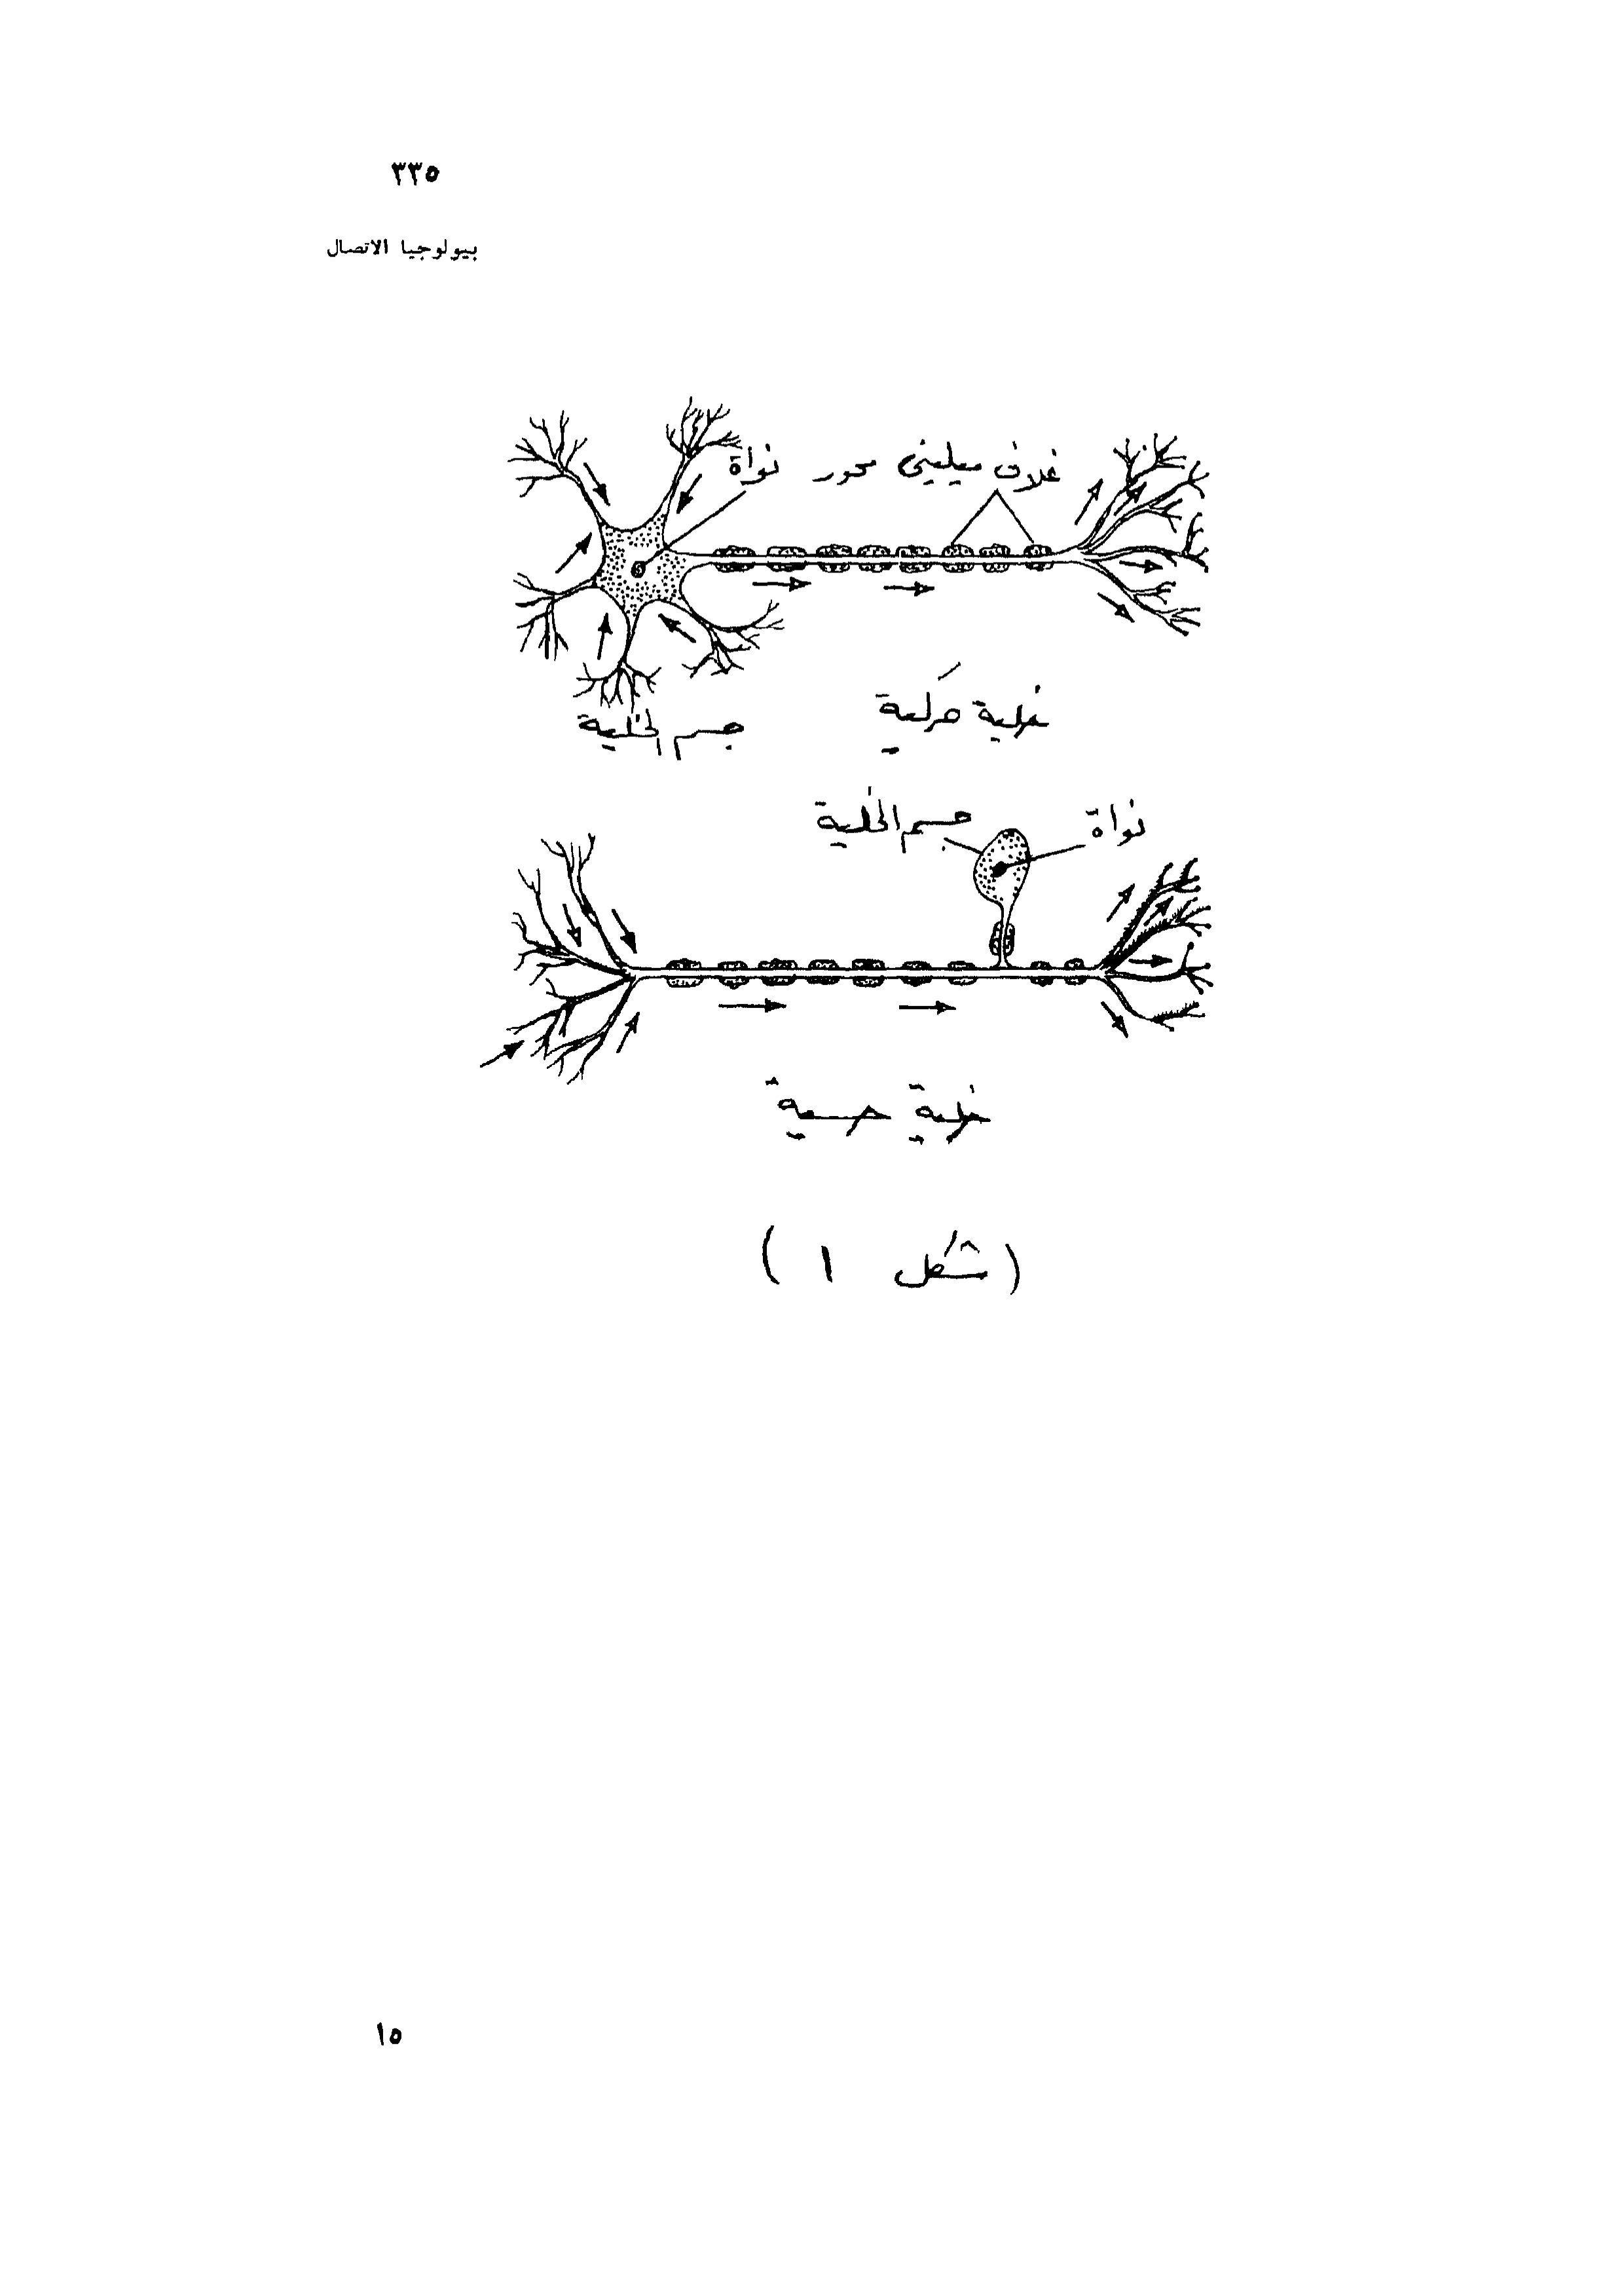 ٣٣٥
بيولوجيا الاتصال
غلاف ميليني محور نواة
خلية حركية
جسم الخلية
نواة
جسم الخلية
خلية حسية
(شكل ١)
١٥